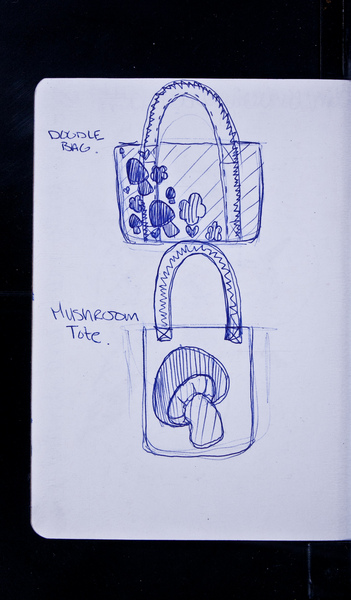 DOODLE
BAG.
MUSHROOM
Tote.